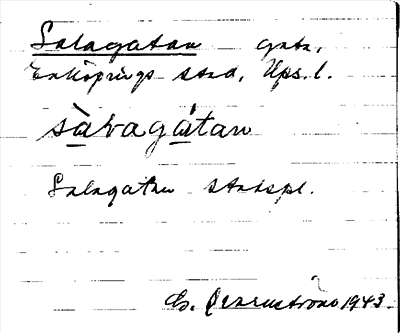 Salagatan gata,
Enköpings stad, Ups. l.
sàlagátan
Salagatan stadspl.
G. 1943.